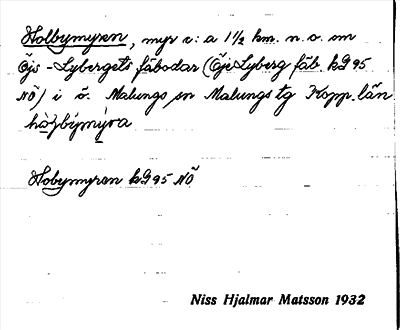 Holbymyren, myr c:a 1½ km. n.o. om
Öjs-Lybergets fäbodar (ÖjsLyberg fäb. kg 95
NÖ) i ö. Malungs sn Malungs tg Kopp. län.
Hobymyren kg 95 NÖ
Niss Hjalmar Matsson 1932